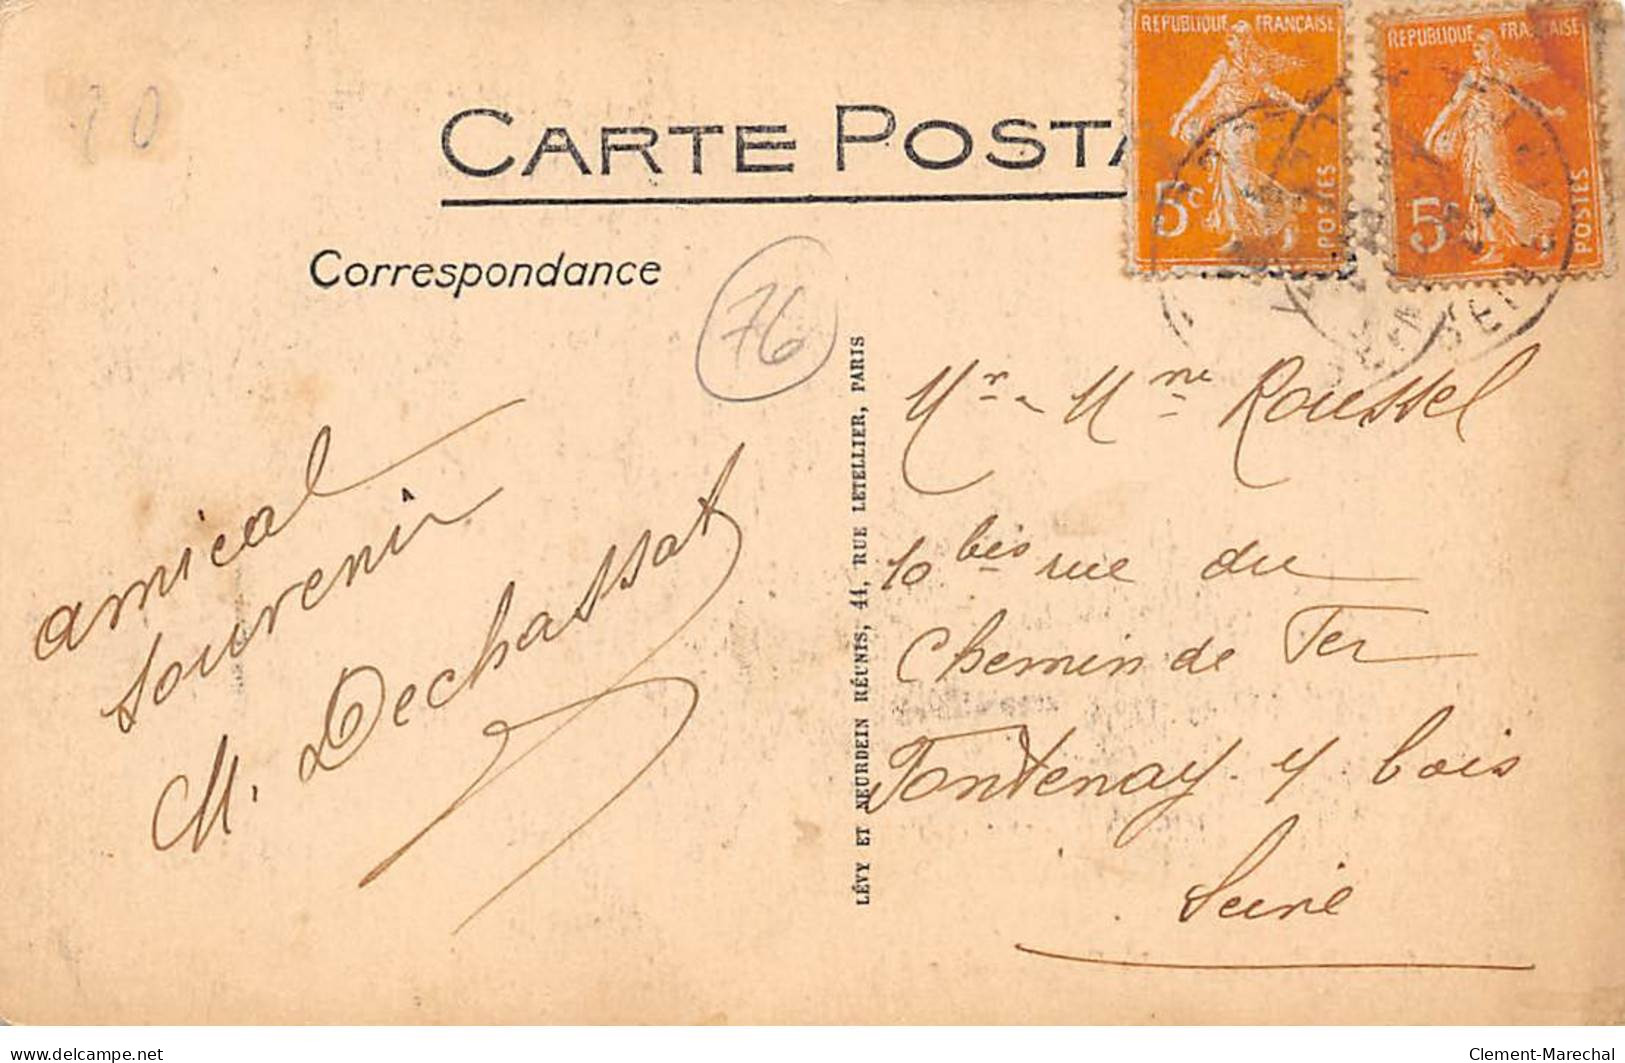 20
CARTE POSTA
REPUBLIQUE FRANÇAISE
5c
POSTES
REPUBLIQUE FRANÇAISE
5c
POSTES
Correspondance
76
amical
souvenir
M. Dechassat
LÉVY ET NEURDEIN RÉUNIS, 44, RUE LETELLIER, PARIS
Mr & Mme Roussel
10 bis rue du
Chemin de Fer
Fontenay s/ bois
Seine
www.delcampe.net
Clement-Marechal